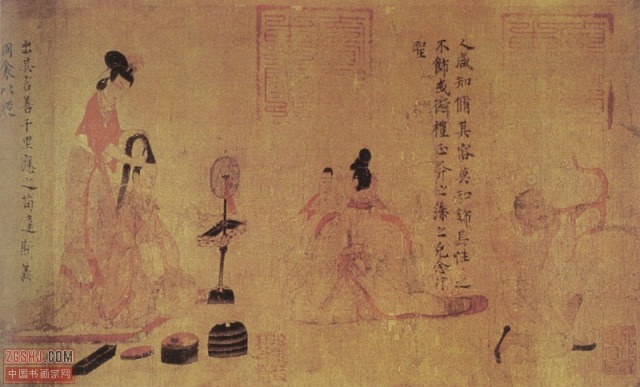 人咸知脩其容莫知飾其性之
不飾或愆禮正斧之藻之克念作
聖
出其言善千里應之苟違斯義
同衾以疑
ZGSHJ.COM
中国书画家网